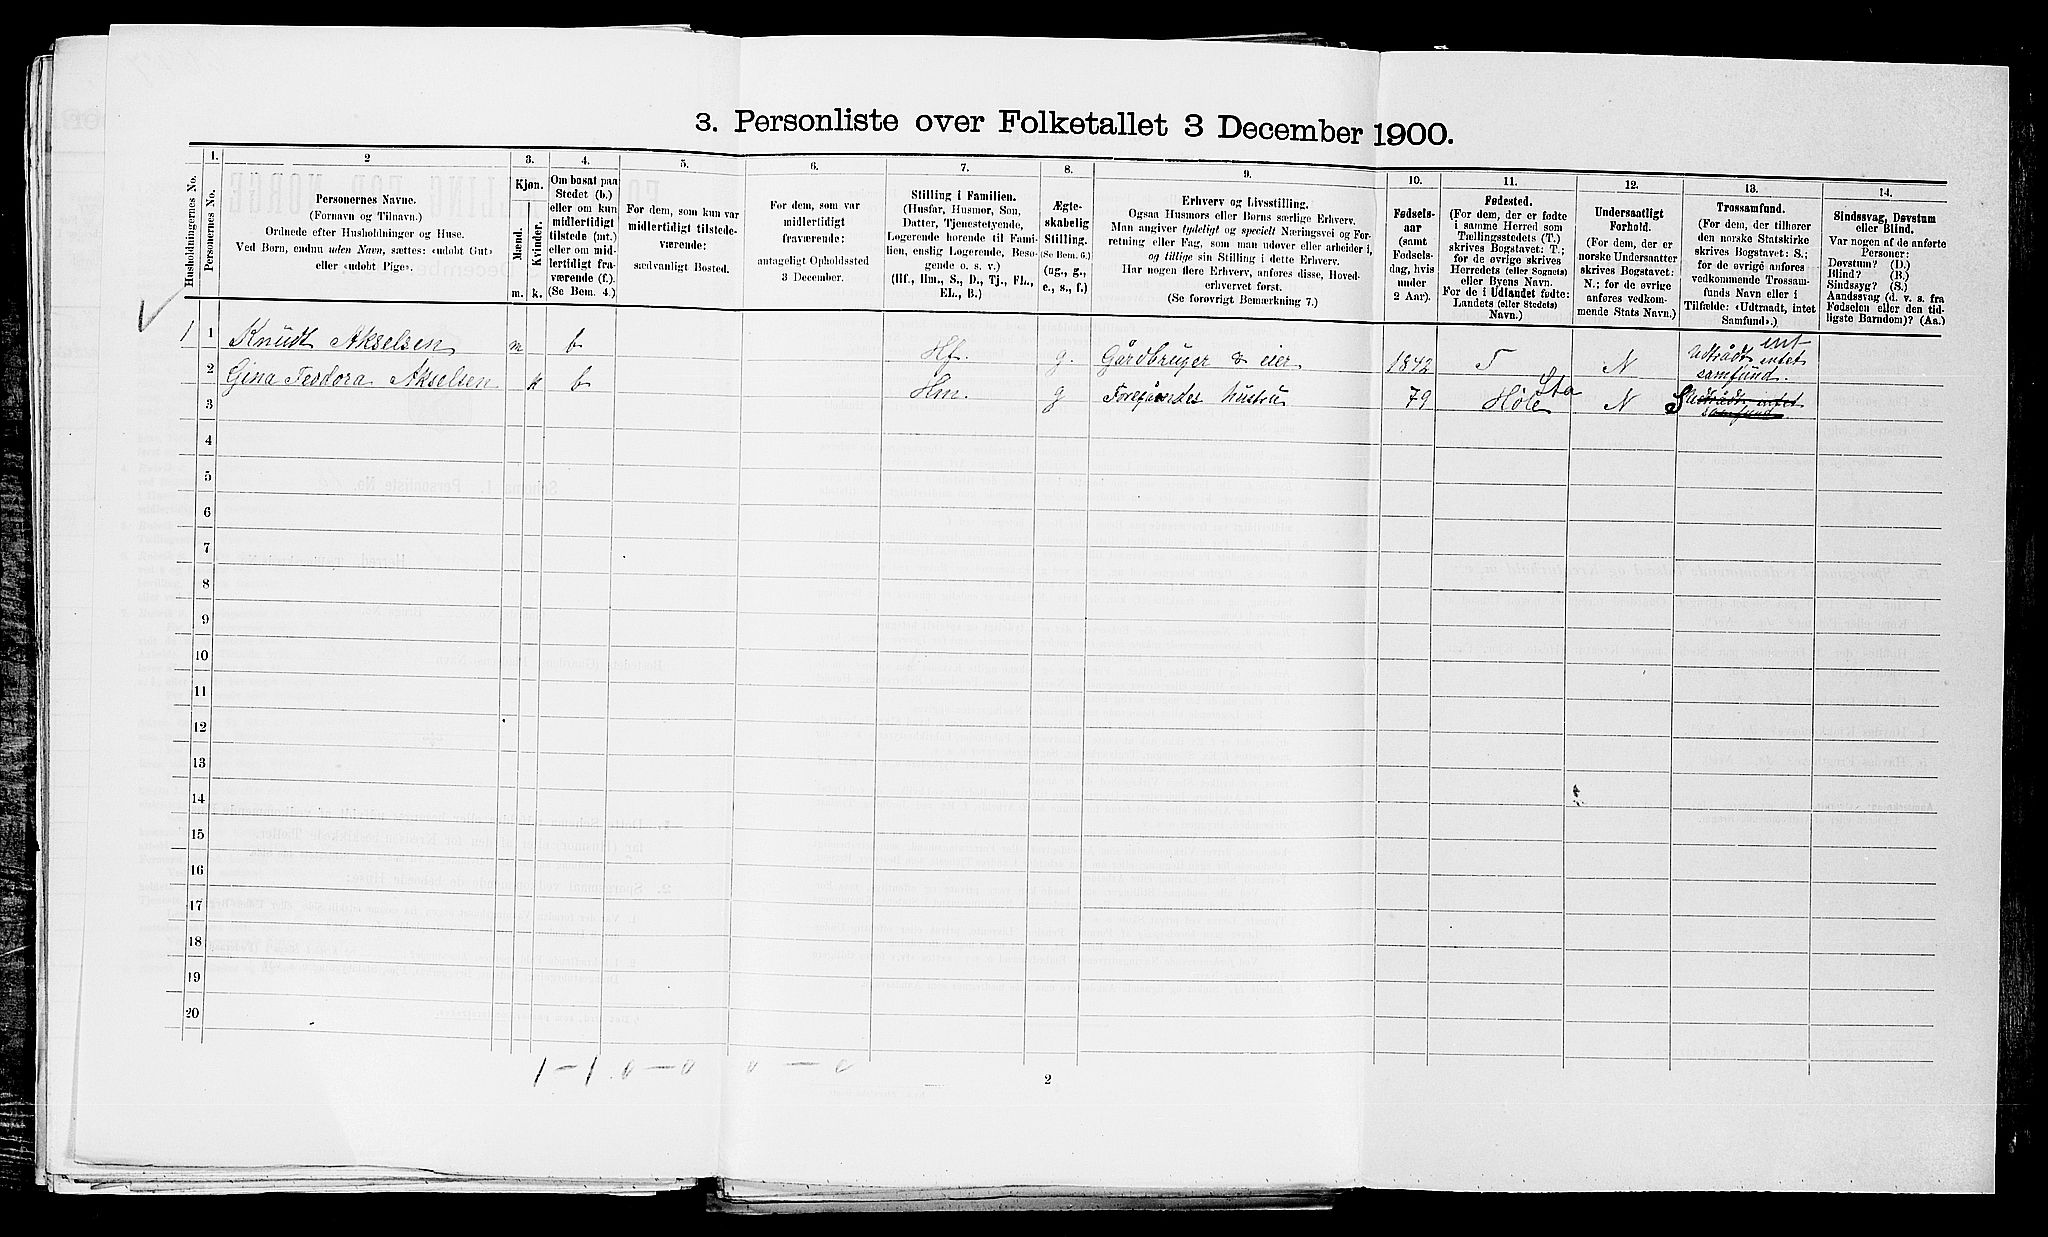 3. Personliste over Folketallet 3 December 1900.
Husholdningernes No.
1.
Personernes No.
2
Personernes Navne.
(Fornavn og Tilnavn.)
Ordnede efter Husholdninger og Huse.
Ved Børn, endnu uden Navn, sættes: «udøbt Gut»
eller «udøbt Pige».
3.
Kjøn.
Mænd.
Kvinder.
m.
k.
4.
Om bosat paa
Stedet (b.)
eller om kun
midlertidigt
tilstede (mt.)
eller om mid-
lertidigt fra-
værende (f.).
(Se Bem. 4.)
5.
For dem, som kun var
midlertidigt tilstede-
værende:
sædvanligt Bosted.
6.
For dem, som var
midlertidigt
fraværende:
antageligt Opholdssted
3 December.
7.
Stilling i Familien.
(Husfar, Husmor, Søn,
Datter, Tjenestetyende,
Logerende hørende til Fami-
lien, enslig Logerende, Besø-
gende o. s. v.)
(Hf., Hm., S., D., Tj., FL.,
EL., B.)
8.
Ægte-
skabelig
Stilling.
(Se Bem. 6.)
(ug., g.,
e., s., f.)
9.
Erhverv og Livsstilling.
Ogsaa Husmors eller Børns særlige Erhverv.
Man angiver tydeligt og specielt Næringsvei og For-
retning eller Fag, som man udøver eller arbeider i,
og tillige sin Stilling i dette Erhverv.
Har nogen flere Erhverv, anføres disse, Hoved-
erhvervet først.
(Se forøvrigt Bemærkning 7.)
10.
Fødsels-
aar
(samt
Fødsels-
dag, hvis
under
2 Aar).
11.
Fødested.
(For dem, der er fødte
i samme Herred som
Tællingsstedets (T.)
skrives Bogstavet: T.;
for de øvrige skrives
Herredets (eller Sognets)
eller Byens Navn.
For de i Udlandet fødte:
Landets (eller Stedets)
Navn.)
12.
Undersaatligt
Forhold.
(For dem, der er
norske Undersaatter
skrives Bogstavet:
N.; for de øvrige
anføres vedkom-
mende Stats Navn.)
13.
Trossamfund.
(For dem, der tilhører
den norske Statskirke
skrives Bogstavet: S.;
for de øvrige anføres
vedkommende Trossam-
funds Navn eller i
Tilfælde: «Udtraadt, intet
Samfund».)
14.
Sindssvag, Døvstum
eller Blind.
Var nogen af de anførte
Personer:
Døvstum? (D.)
Blind? (B.)
Sindssyg? (S.)
Aandssvag (d. v. s. fra
Fødselen eller den tid-
ligste Barndom)? (Aa.)
1 1 Knudt Akselsen m b Hf. g. Gårdbruger & eier 1842 T N Udtrådt intet samfund. int
2 Gina Teodora Akselsen k b Hm. g Foregåendes hustru 79 Høle Sta N S Udtrådt intet samfund
3
4
5
6
7
8
9
10
11
12
13
14
15
16
17
18
19
20
1 – 1 0 – 0 0 – 0
2